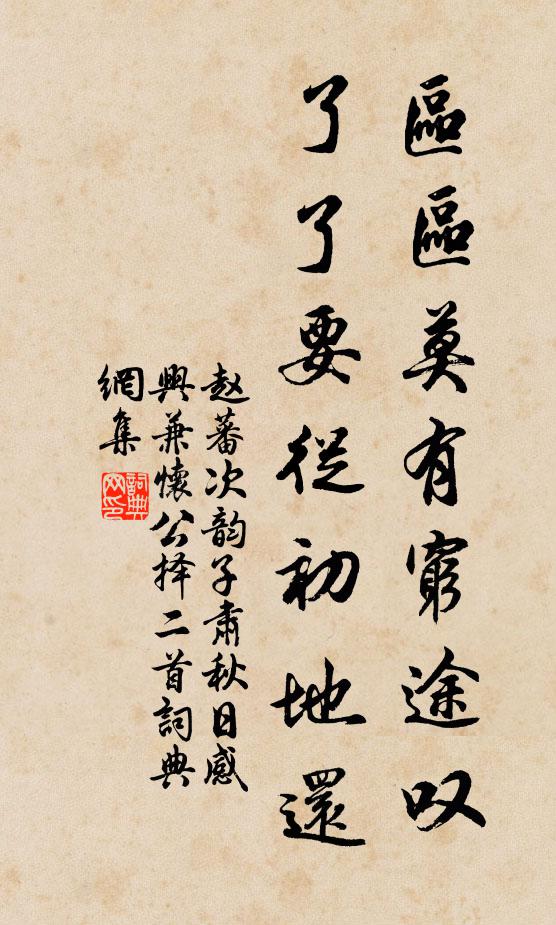 區區莫有窮途叹
了了要從初地還
赵蕃次韵子肅秋日感
興兼懷公择二首詞典
網集
詞典
网印